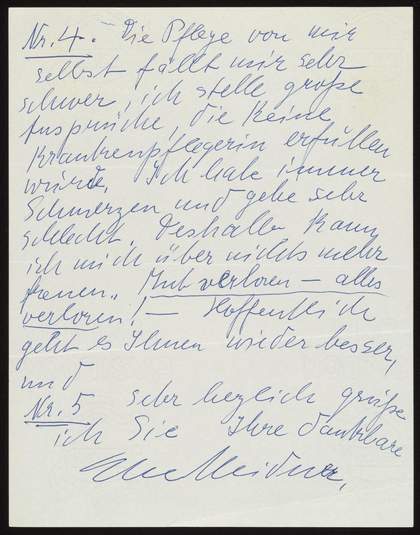 Nr. 4. Die Pflege von mir
selbst fällt mir sehr
schwer, ich stelle große
Ansprüche, die keine
Krankenpflegerin erfüllen
würde. Ich habe immer
Schmerzen und gehe sehr
schlecht. Deshalb kann
ich mich über nichts mehr
freuen. „Mut verloren – alles
verloren! – Hoffentlich
geht es Ihnen wieder besser,
und
Nr. 5 sehr herzlich grüße
ich Sie Ihre dankbare
Else Meidner.